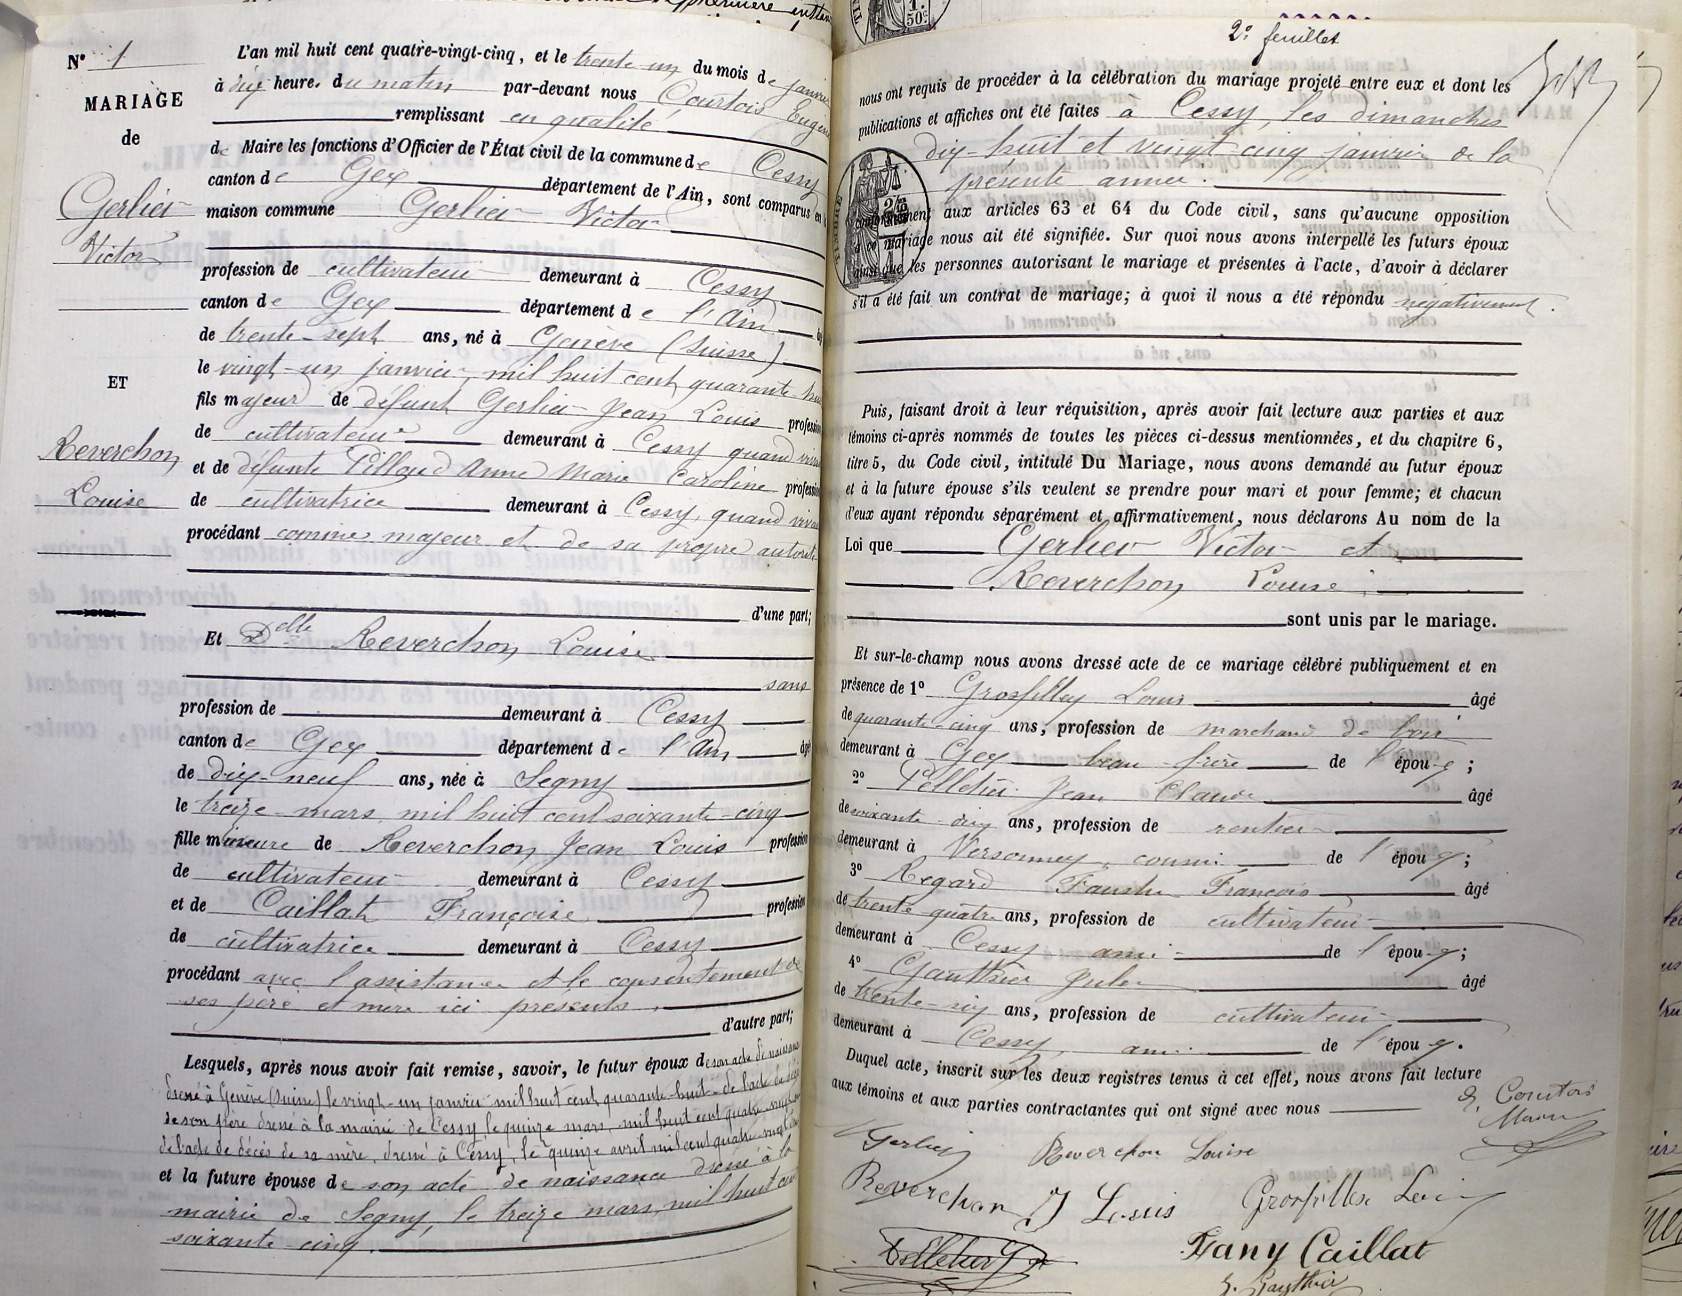 N° 1
MARIAGE
de
Gerlier
Victor
ET
Reverchon
Louise
L'an mil huit cent quatre-vingt-cinq, et le trente-un du mois de janvier
à dix heures du matin par-devant nous Courtois Eugène
remplissant en qualité
de Maire les fonctions d'Officier de l'État civil de la commune de Cessy
canton de Gex département de l'Ain, sont comparus en
maison commune Gerlier Victor
profession de cultivateur demeurant à Cessy
canton de Gex département de l'Ain
de trente-sept ans, né à Genève (Suisse)
le vingt-un janvier, mil huit cent quarante-huit
fils majeur de défunt Gerlier Jean Louis profession
de cultivateur demeurant à Cessy quand vivait
et de défunte Pilloud Anne Marie Caroline profession
de cultivatrice demeurant à Cessy, quand vivait
procédant comme majeur et de sa propre autorité
d'une part;
Et Delle Reverchon Louise
sans
profession de demeurant à Cessy
canton de Gex département de l'Ain âgé
de dix-neuf ans, née à Segny
le treize mars, mil huit cent soixante-cinq
fille mineure de Reverchon Jean Louis profession
de cultivateur demeurant à Cessy
et de Caillat Françoise profession
de cultivatrice demeurant à Cessy
procédant avec l'assistance et le consentement de
ses père et mère ici présents.
d'autre part;
Lesquels, après nous avoir fait remise, savoir, le futur époux de son acte de naissance
dressé à Genève (Suisse) le vingt-un janvier mil huit cent quarante-huit - de l'acte de décès
de son père dressé à la mairie de Cessy le quinze mars, mil huit cent quatre-vingt
de l'acte de décès de sa mère, dressé à Cessy, le quinze avril mil cent quatre-vingt
et la future épouse de son acte de naissance dressé à la
mairie de Segny, le treize mars, mil huit cent
soixante-cinq.
2e feuillet
nous ont requis de procéder à la célébration du mariage projeté entre eux et dont les
publications et affiches ont été faites à Cessy, les dimanches
dix-huit et vingt-cinq janvier de la
présente année.
conformément aux articles 63 et 64 du Code civil, sans qu'aucune opposition
à ce mariage nous ait été signifiée. Sur quoi nous avons interpellé les futurs époux
ainsi que les personnes autorisant le mariage et présentes à l'acte, d'avoir à déclarer
s'il a été fait un contrat de mariage; à quoi il nous a été répondu négativement.
Puis, faisant droit à leur réquisition, après avoir fait lecture aux parties et aux
témoins ci-après nommés de toutes les pièces ci-dessus mentionnées, et du chapitre 6,
titre 5, du Code civil, intitulé Du Mariage, nous avons demandé au futur époux
et à la future épouse s'ils veulent se prendre pour mari et pour femme; et chacun
d'eux ayant répondu séparément et affirmativement, nous déclarons Au nom de la
Loi que Gerlier Victor et
Reverchon Louise
sont unis par le mariage.
Et sur-le-champ nous avons dressé acte de ce mariage célébré publiquement et en
présence de 1° Grosfilley Louis âgé
de quarante-cinq ans, profession de marchand de bois
demeurant à Gex beau-frère de l'époux;
2° Pelletier Jean Claude âgé
de soixante-dix ans, profession de rentier
demeurant à Versonnex, cousin de l'époux;
3° Regard Fauste François âgé
de trente quatre ans, profession de cultivateur
demeurant à Cessy ami de l'époux;
4° Gauthier Jules âgé
de trente-six ans, profession de cultivateur
demeurant à Cessy, ami de l'époux.
Duquel acte, inscrit sur les deux registres tenus à cet effet, nous avons fait lecture
aux témoins et aux parties contractantes qui ont signé avec nous
E. Courtois
Maire
Gerlier Reverchon Louise
Reverchon J Louis Grosfilley Louis
Pelletier
Fany Caillat
J. Gauthier